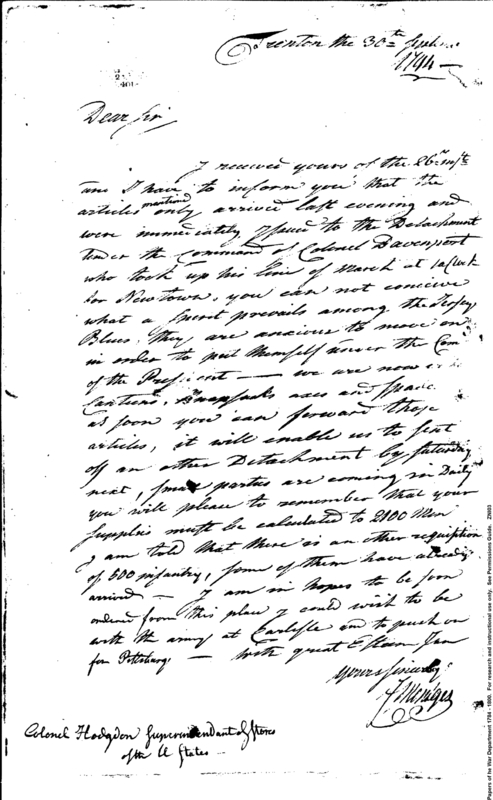 Trenton the 30th Sept
1794
Dear Sir
I received yours of the 26th inst
and I have to inform you that the
articles mentioned only arrived last evening and
were immediately Issued to the Detachment
under the Command of Colonel Davenport
who took up his line of march at 1 oClock
for Newtown, you can not concieve
what a Spirit prevails among the Jersey
Blues, they are ancious to move on
in order to put themself under the Com
of the President — we are now
Canteens, Knapsaks axes and Spade
as soon you can forward those
articles, it will enable us to sent
off an other Detachment by Saturday
next, small parties are coming in Daily
you will please to remember that your
Supplies must be calculated to 2100 Men
I am told that there is an other requisition
of 500 infantry, some of them have already
arrived — I am in hopes to be soon
ordered from this place I could wish to be
with the army at Carlisle and to push on
for Pittsburg — with great Esteem I am
yours Sincerly
J Mentges
Colonel Hodgdon Superintendant of Stores
of the U States —
Papers of he War Department 1784 - 1800. For research and instructional use only. See Permissions Guide.